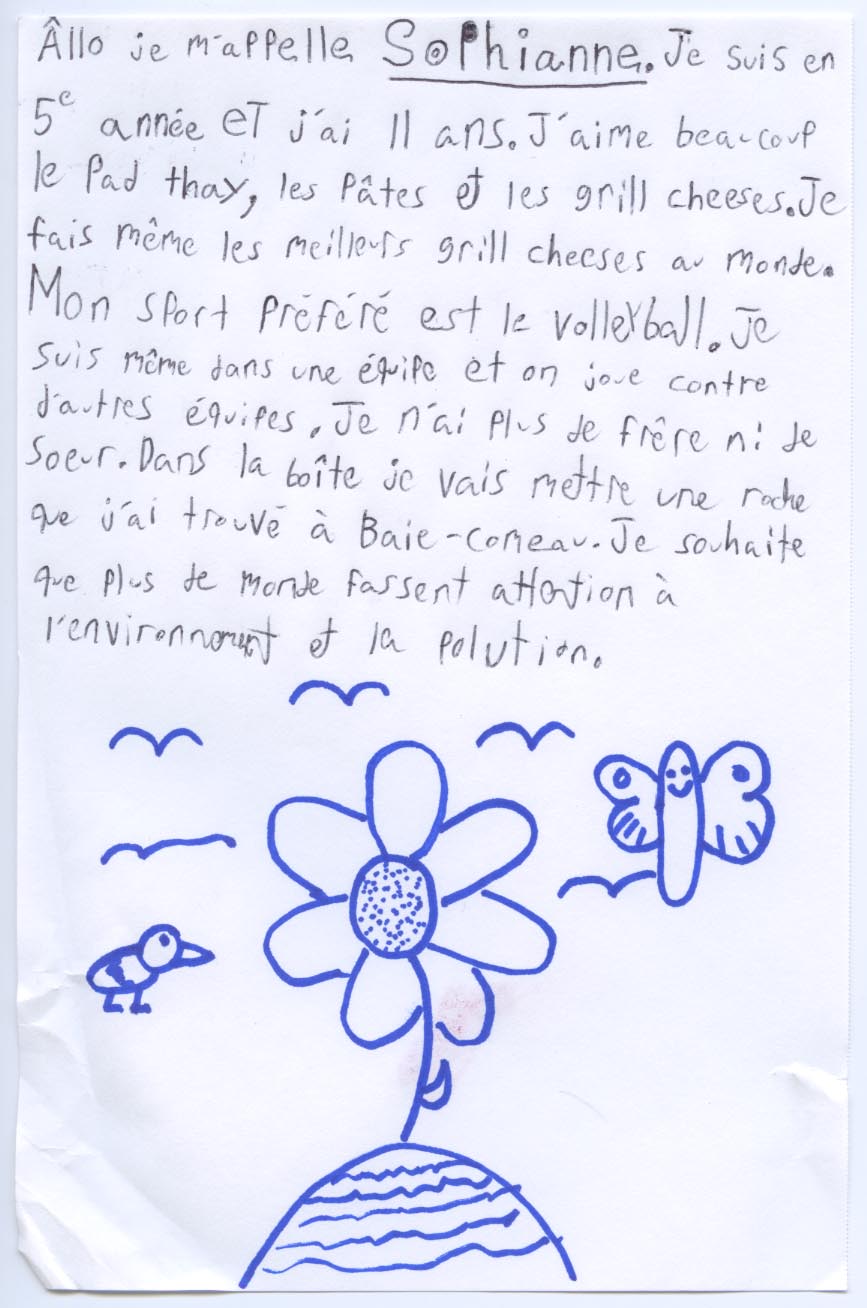 Âllo je m'appelle Sophianne. Je suis en
5e année et j'ai 11 ans. J'aime beaucoup
le Pad thay, les pâtes et les grill cheeses. Je
fais même les meilleurs grill cheeses au monde.
Mon sport préféré est le volleyball. Je
suis même dans une équipe et on joue contre
d'autres équipes. Je n'ai plus de frère ni de
soeur. Dans la boîte je vais mettre une roche
que j'ai trouvé à Baie-comeau. Je souhaite
que plus de monde fassent attention à
l'environnement et la polution.